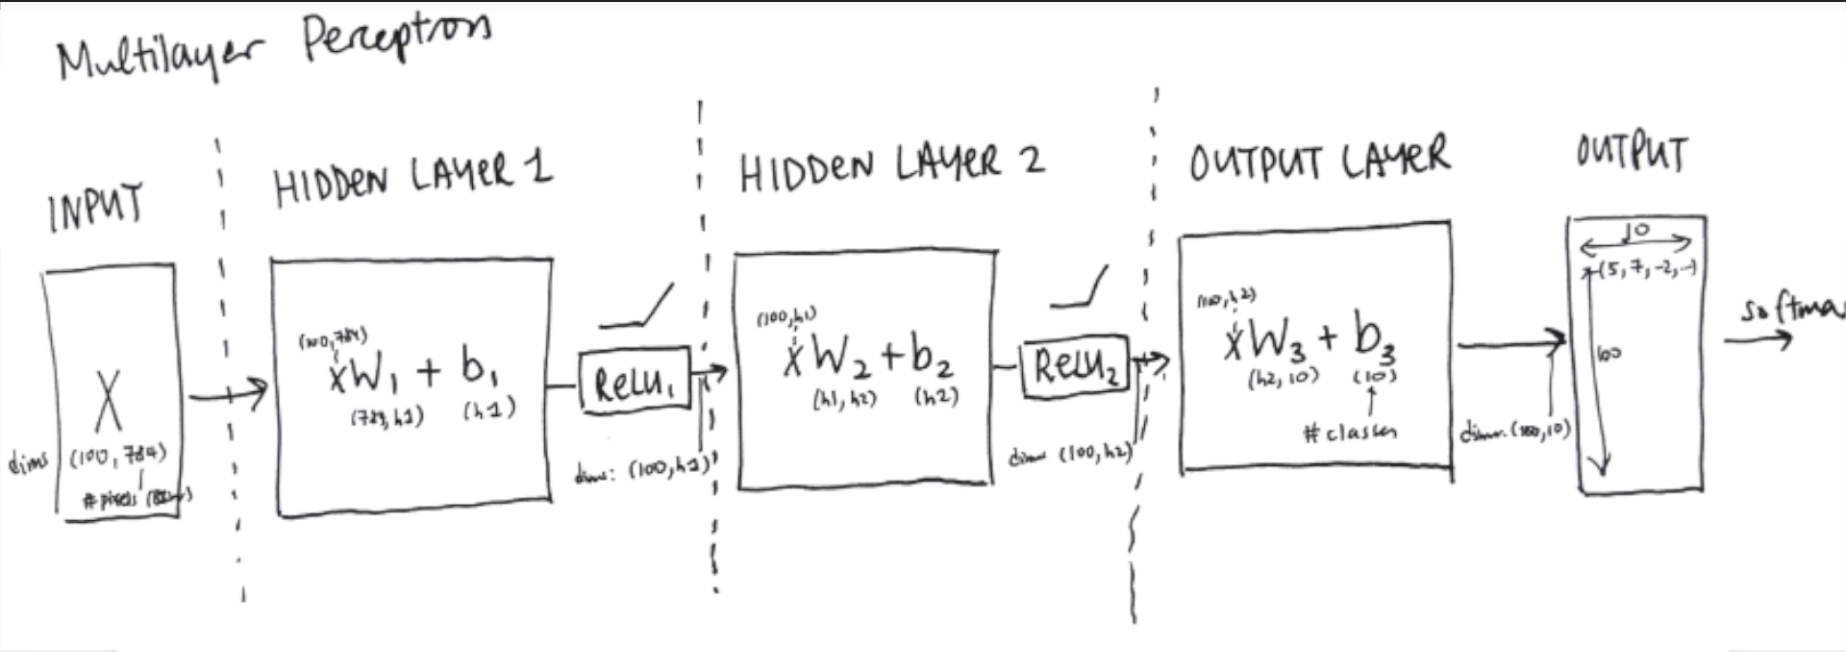 Multilayer Perceptron
INPUT
X
dims (100, 784)
# pixels
HIDDEN LAYER 1
(100, 784)
xW1 + b1
(h1)
ReLU1
dims: (100, h1)
HIDDEN LAYER 2
(100, h1)
xW2 + b2
(h1, h2) (h2)
ReLU2
dims (100, h2)
OUTPUT LAYER
(100, h2)
xW3 + b3
(h2, 10) (10)
# classes
dims: (100, 10)
OUTPUT
10
(5, 7, -2, ...)
100
softmax